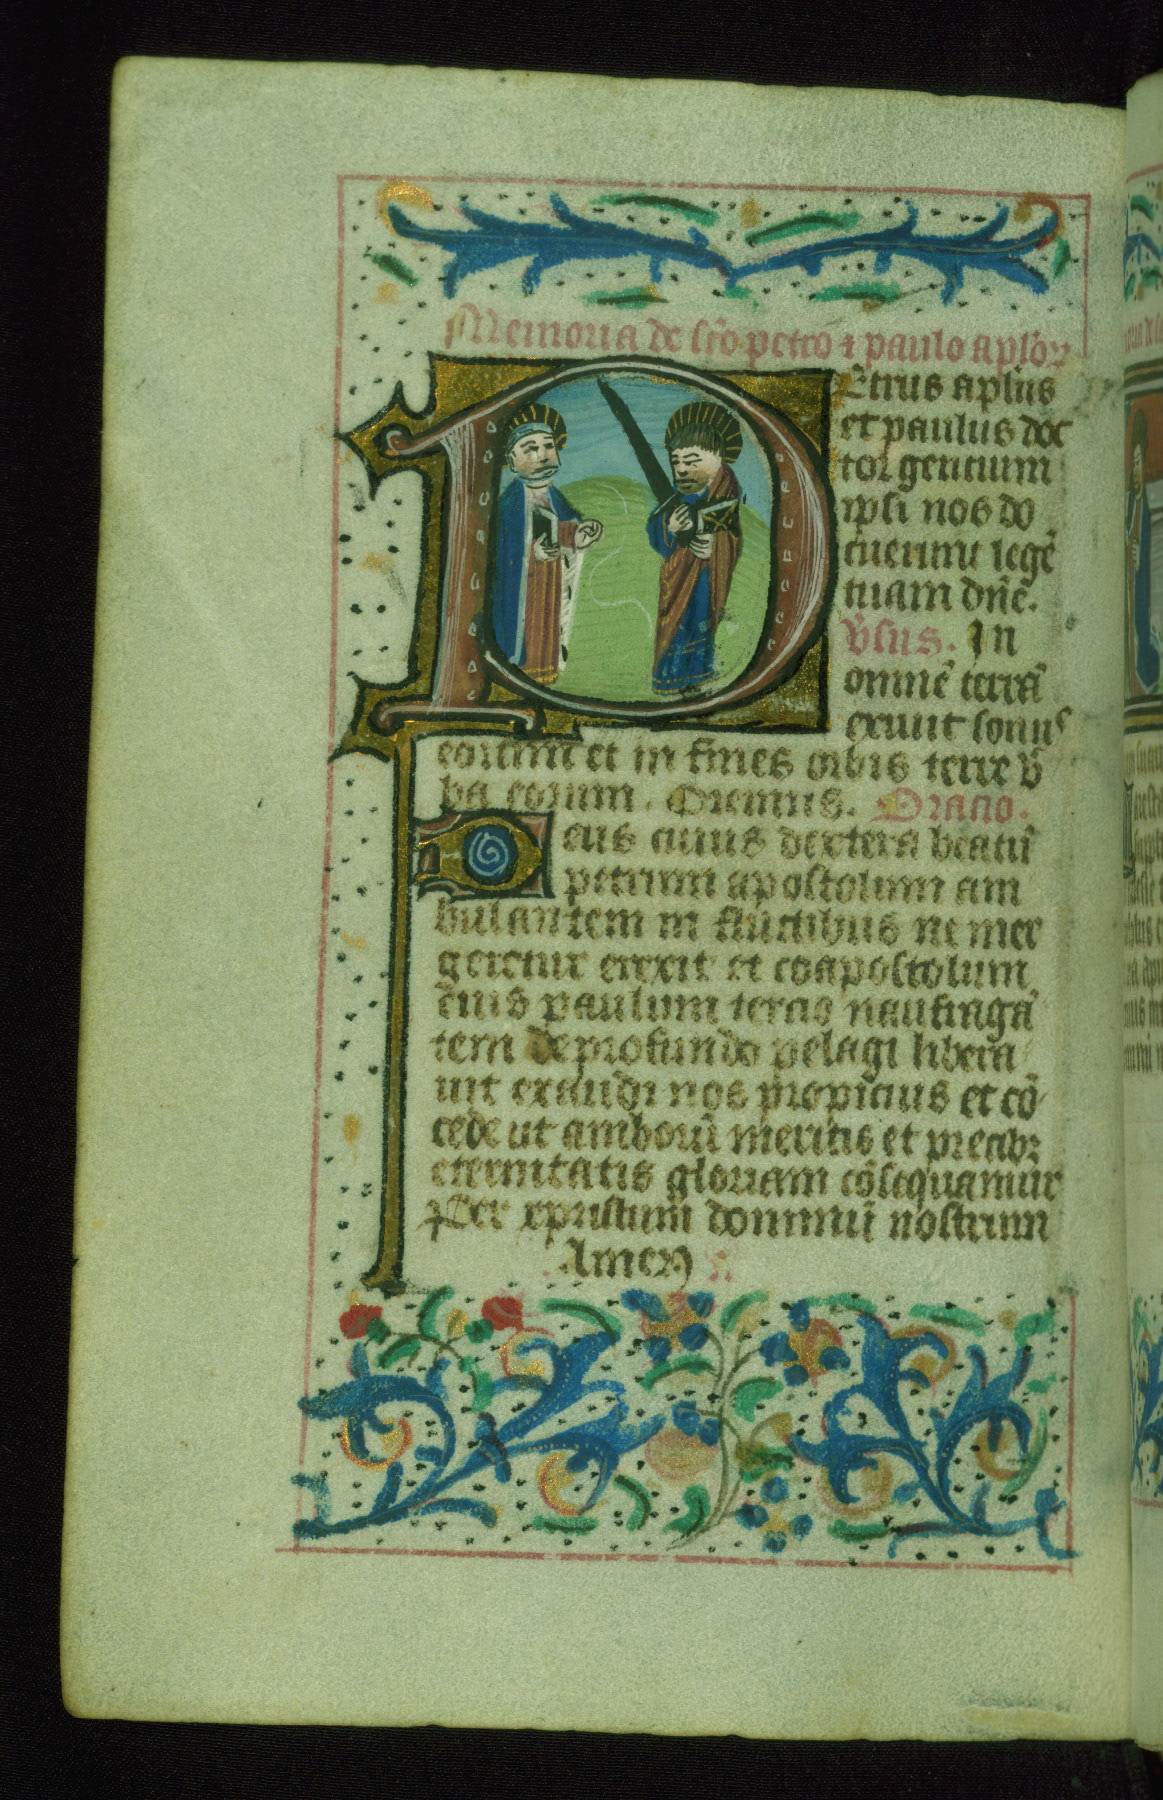 Memoria de sc̄o petro ⁊ paulo aplōꝝ
PEtrus apl̄us
et paulus doc
tor gentium
ip̄si nos do
cuerunt legē
tuam dn̄e.
v̄sus. In
omnē terrā
exiuit sonus
eorum et in fines orbis terre v̄
ba eorum. Oremus. Oracio.
Deus cuius dextera beatū
petrum apostolum am
bulantem in fluctibus ne mer
geretur erexit et coapostolum
eius paulum tercio naufragā
tem de profundo pelagi libera
uit exaudi nos propicius et cō
cede ut amborū meritis et precibꝫ
eternitatis gloriam cōsequamur
Per xpristum dominū nostrum
Amen